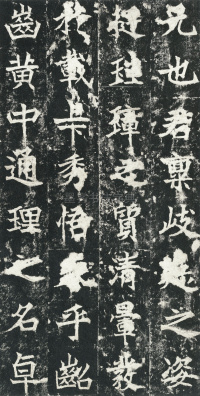 兄也君稟岐嶷之姿
挺珪璋之質清暈發
於載卡秀悟表乎齠
齒黃中通理之名卓